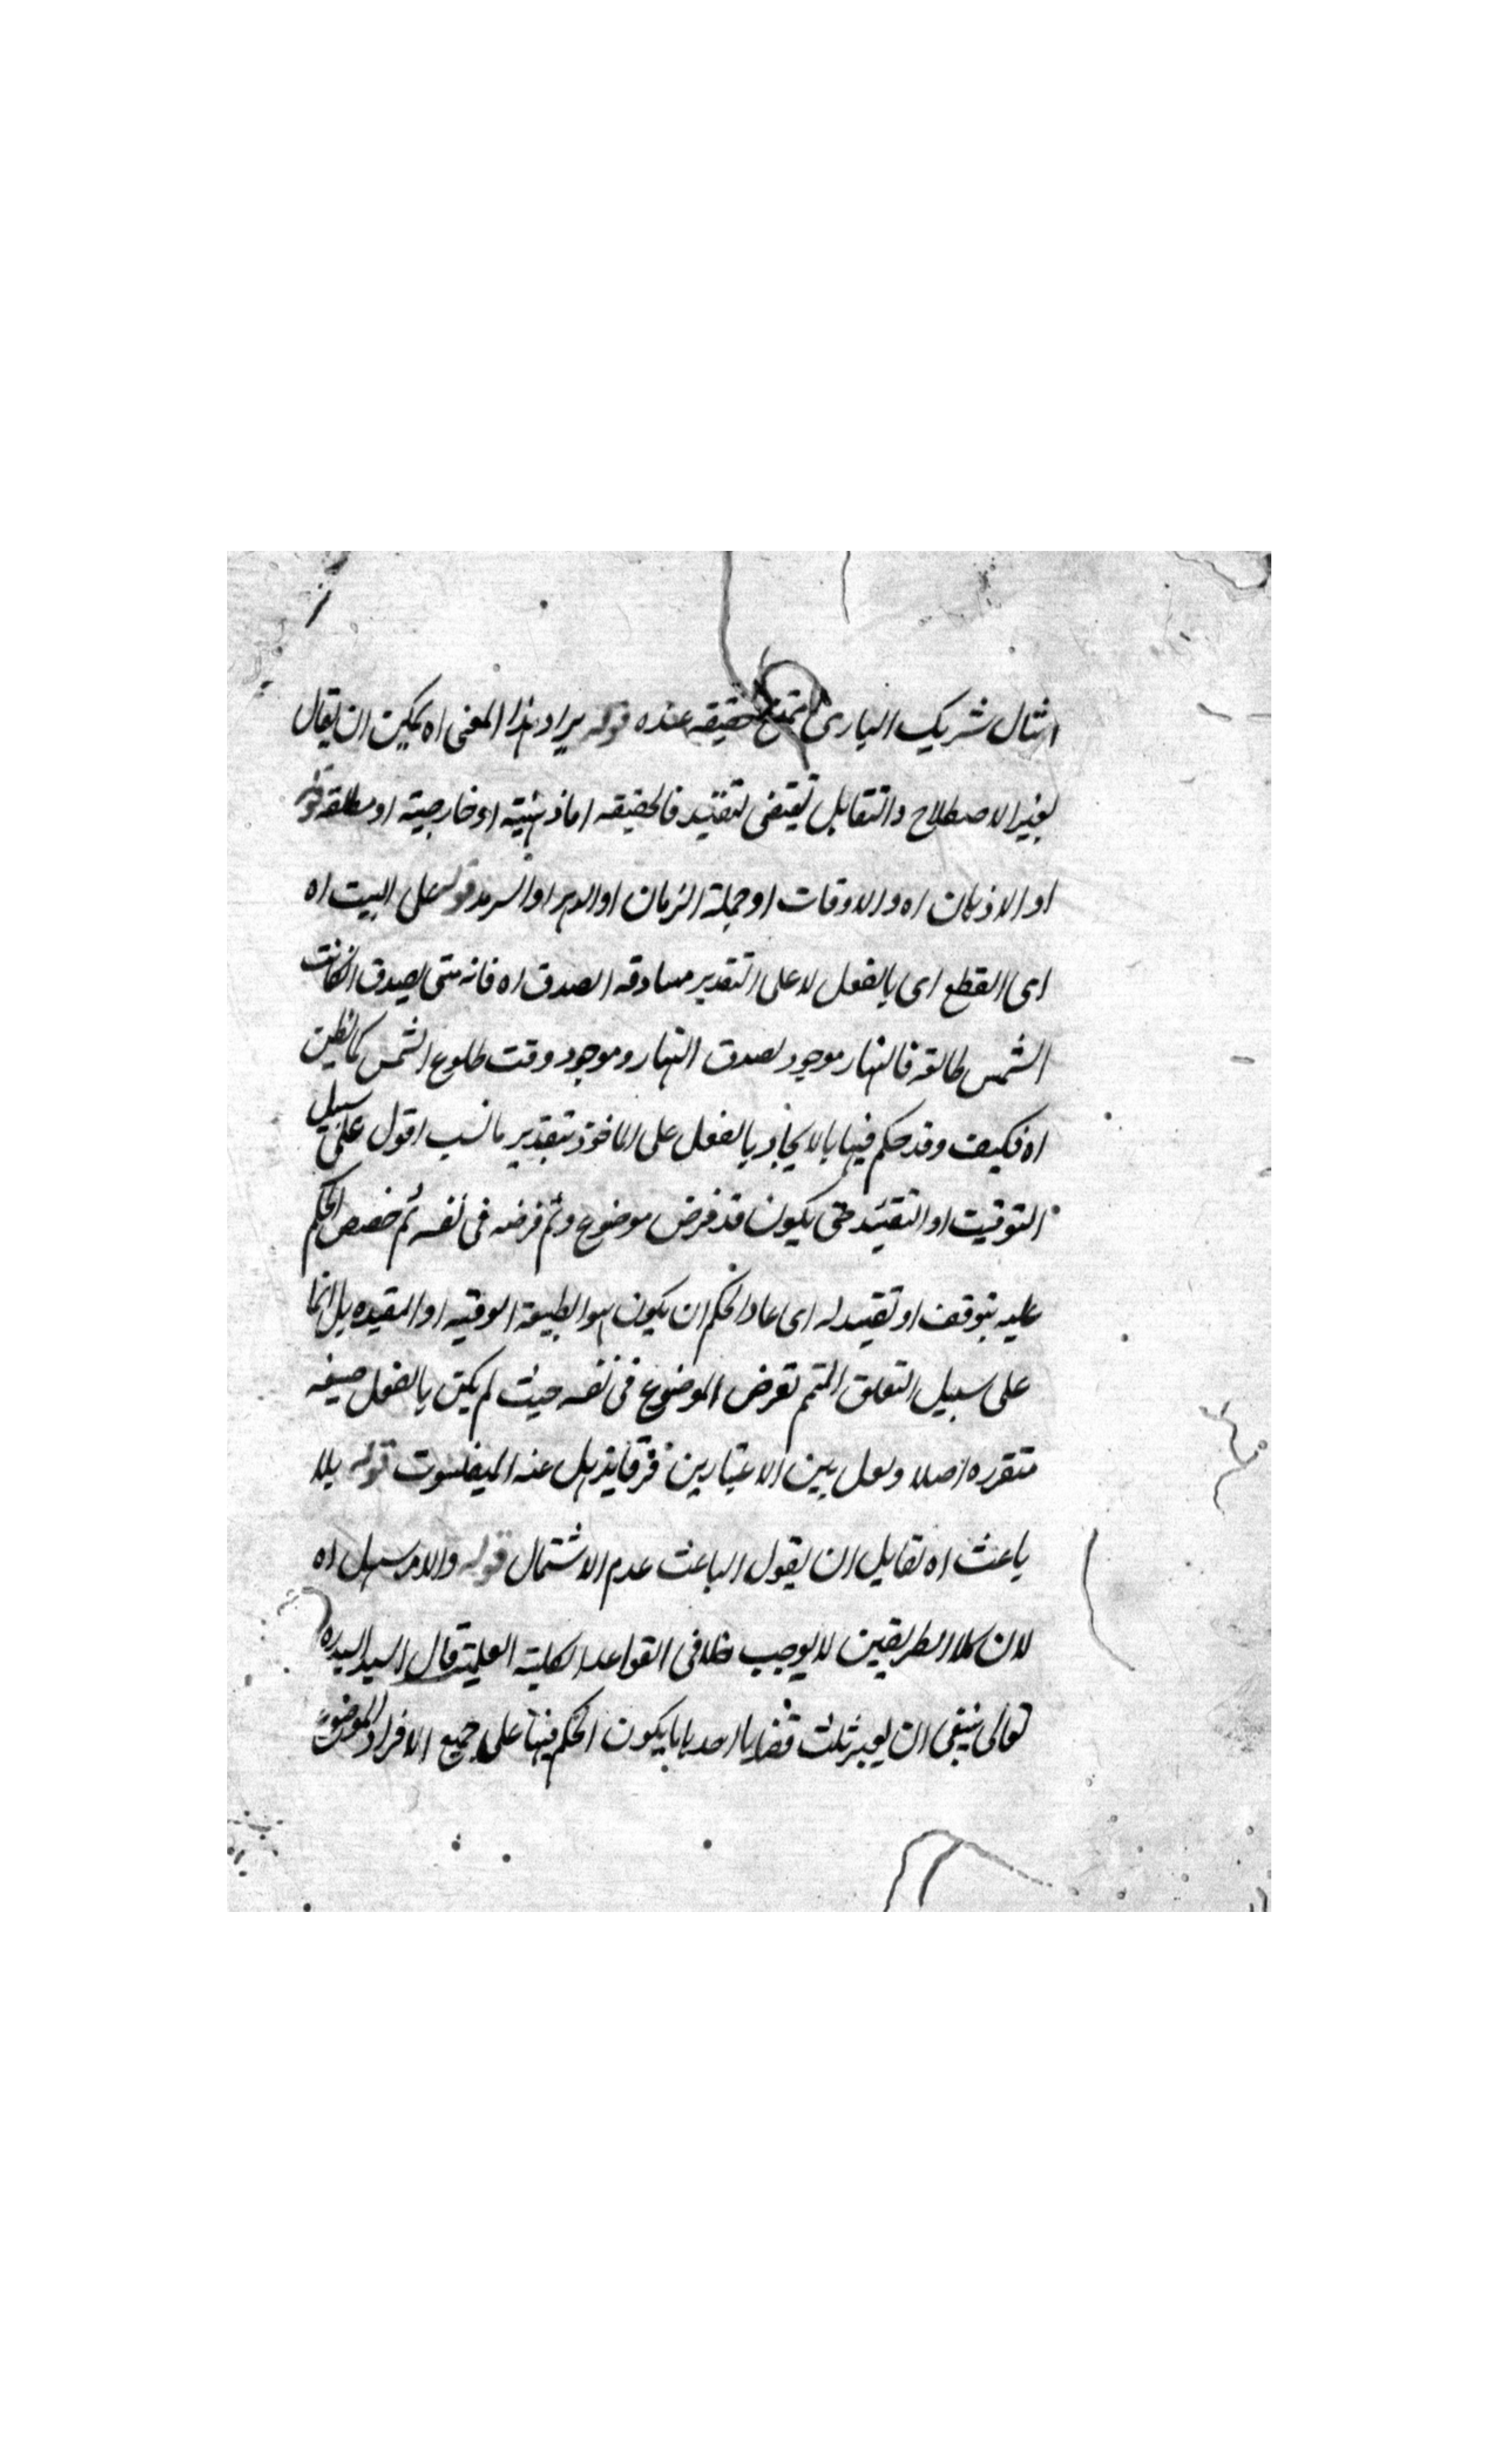 امثال شريك الباری ممتنع حقيقه عنده قوله يراد بهذا المعنى اه يمكن ان يقال
بغير الاصطلاح والتقابل يقتضى لتقييد فالحقيقه اما ذهنية او خارجية او مطلقه قوله
او الاذهان اه والاوقات او جملة الزمان او الدهر او السرمد قوله على البيت اه
اى القطع اى بالفعل لا على التقدير مساوقه الصدق اه فانه متى يصدق انكانت
الشمس طالعه فالنهار موجود يصدق النهار وموجود وقت طلوع الشمس كما يظن
اه فكيف وقد حكم فيها بالايجاب بالفعل على الماخوذ بتقدير ما نسب اقول على سبيل
التوقيت او التقييد حتى يكون قد فرض موضوع وتم فرضه فى نفسه ثم خصص الحكم
عليه بتوقف او تقييد له اى عاد الحكم ان يكون هو الطبيعة الوقتيه او المقيده بل انما
على سبيل التعلق المتمم بفرض الموضوع فى نفسه حيث لم يكن بالفعل صيغه
متقرره اصلا ولعل بين الاعتبارين فرقا يذهل عنه المتفلسفون قوله بلا
باعث اه لقايل ان يقول الباعث عدم الاشتمال قوله والامر سهل اه
لان كلا الطريقين لا يوجب خلا فى القواعد الكلية العلمية قال السيد السيد ره
تعالى ينبغى ان يعتبر ثلث قضايا احديها يكون الحكم فيها على جميع الافراد الموضوع